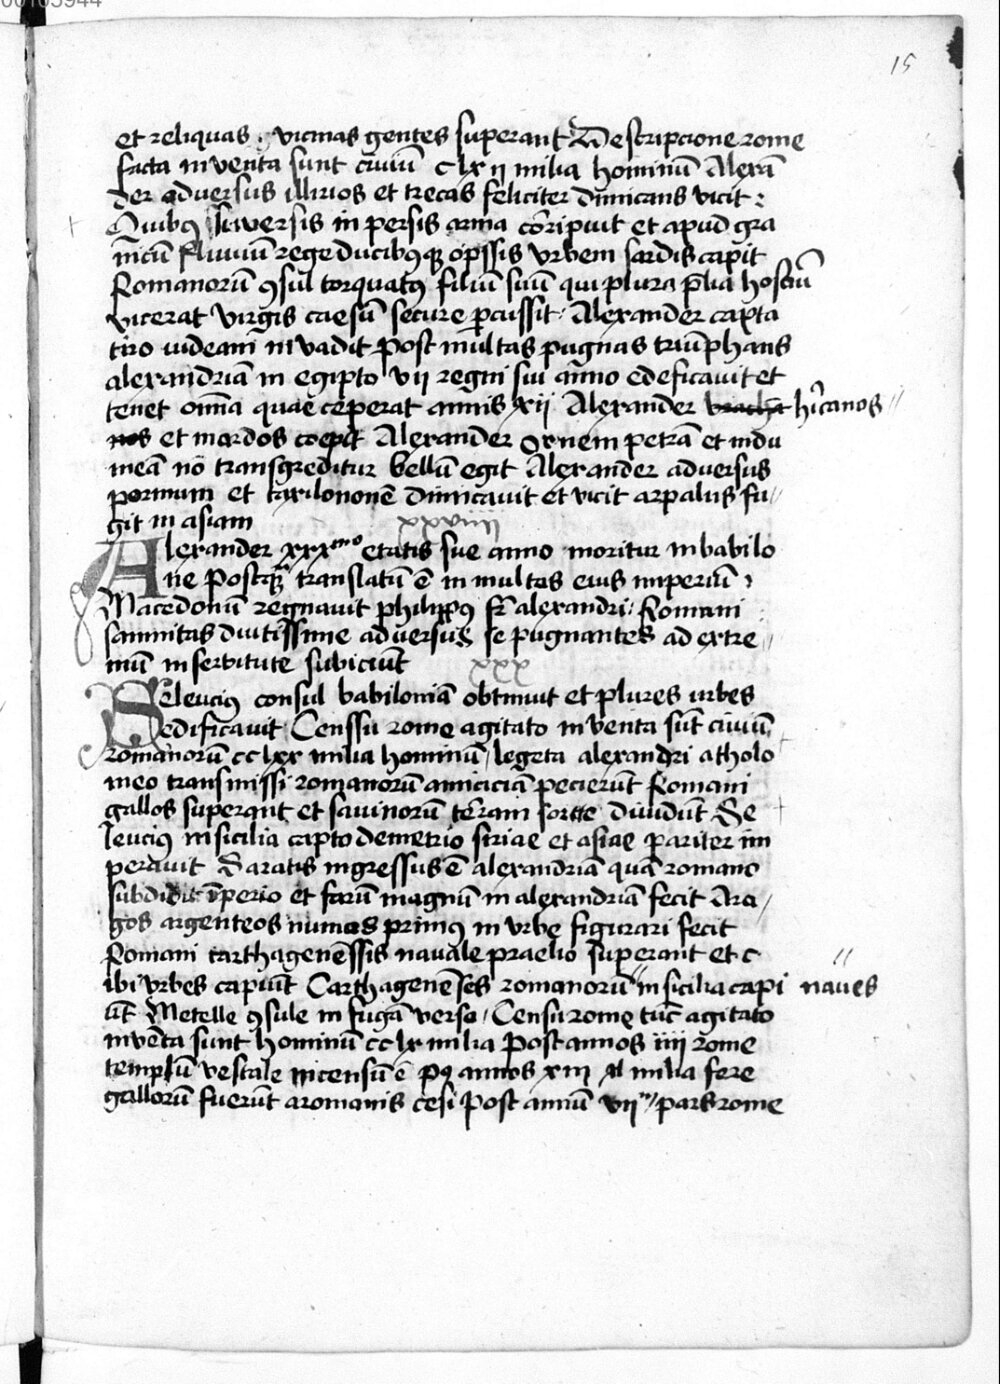 00105944
15
et reliquas . vicinas gentes superant Descripcione rome
facta inventa sunt civiū c lx ij milia hominū Alexā
der adversus illirios et trecas feliciter dimicans vicit :
Quibus in persis arma corripuit et apud gra
nicū fluviū rege ducibusq; op̄ssis vrbem sardis capit
Romanorū 9sul torquatus filiū suū qui plura p̄lia hostiū
vicerat virgis caesū secure percussit . Alexander capta
tiro iudeam invadit Post multas pugnas triūphans
alexandriā in egipto vij regni sui anno edeficavit et
tenet omīa quae ceperat annis xij Alexander hircanos
nos et mardos coepit Alexander ornem petrā et indu
meā nō transgreditur bellū egit Alexander adversus
pormum et taxilononē dimicavit et vicit arpalus fu
git in asiam
xxviiij
Alexander xxxmo etatis sue anno moritur in babilo
ne Postq̄ translatū ē in multas eius imperiū :
Macedonū regnavit philippus fr̄ alexandri : Romani
samnitas diutissime adversus se pugnantes ad extre
mū in servitute subiciūt
xxx
Seleucius consul babiloniā obtinuit et plures urbes
edificavit Censsu rome agitato inventa sūt civiū
romanorū cc lxx milia hominū legata alexandri a tholo
meo transmissi romanorū amiciciā pecierūt Romani
gallos superant et savinorū terram sorte dividūt Se
leucius in sicilia capto demetrio siriae et asiae pariter im
peravit Saratis ingressus ē alexandriā quā romano
subdidit īperio et farū magnū in alexandriā fecit Ara
gos argenteos numos primus in vrbe figurari fecit
Romani carthagenēssis navale praelio superant et c
ibi vrbes capiūt Carthagenēses romanorū in sicilia capi naves
ūt Metelle 9sule in fugā verso / Censu rome tūc agitato
inventa sunt hominū cc lx milia Post annos iiij rome
templū vestale incensū ē p9 annos xiij xl milia fere
gallorū fuerūt a romanis cesi Post annū vij pars rome